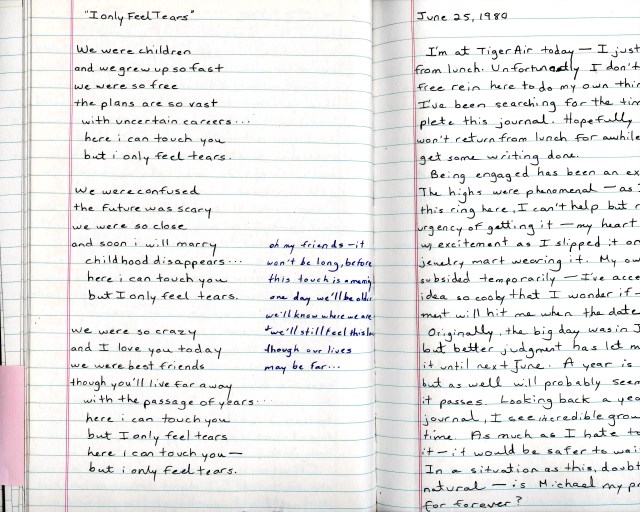 "I only Feel Tears"
We were children
and we grew up so fast
we were so free
the plans are so vast
with uncertain careers...
here i can touch you
but i only feel tears.
We were confused
the future was scary
we were so close
and soon i will marry
childhood disappears...
here i can touch you
but I only feel tears.
we were so crazy
and I love you today
we were best friends
though you'll live far away
with the passage of years...
here i can touch you
but I only feel tears
here i can touch you—
but i only feel tears.
oh my friends-it
won't be long, before
this touch is
one day we'll be
we'll know where we are
+ we'll still feel this
though our lives
may be far...
June 25, 1980
I'm at Tiger Air today — I just
from lunch. Unfortunately I don't
free rein here to do my own
I've been searching for the
plete this journal. Hopefully
won't return from lunch for awhile
get some writing done.
Being engaged has been an
The highs were phenomenal — as I
this ring here, I can't help but
urgency of getting it — my heart
w/ excitement as I slipped it
jewelry mart wearing it. My
subsided temporarily — I've
idea so cooly that I wonder if
will hit me when the date
Originally, the big day was in
but better judgment has let
it until next June. A year is
but as well will probably
it passes. Looking back a
journal, I see incredible
time. As much as I hate to
it — it would be safer to
In a situation as this, doubt
natural — is Michael my
for forever?